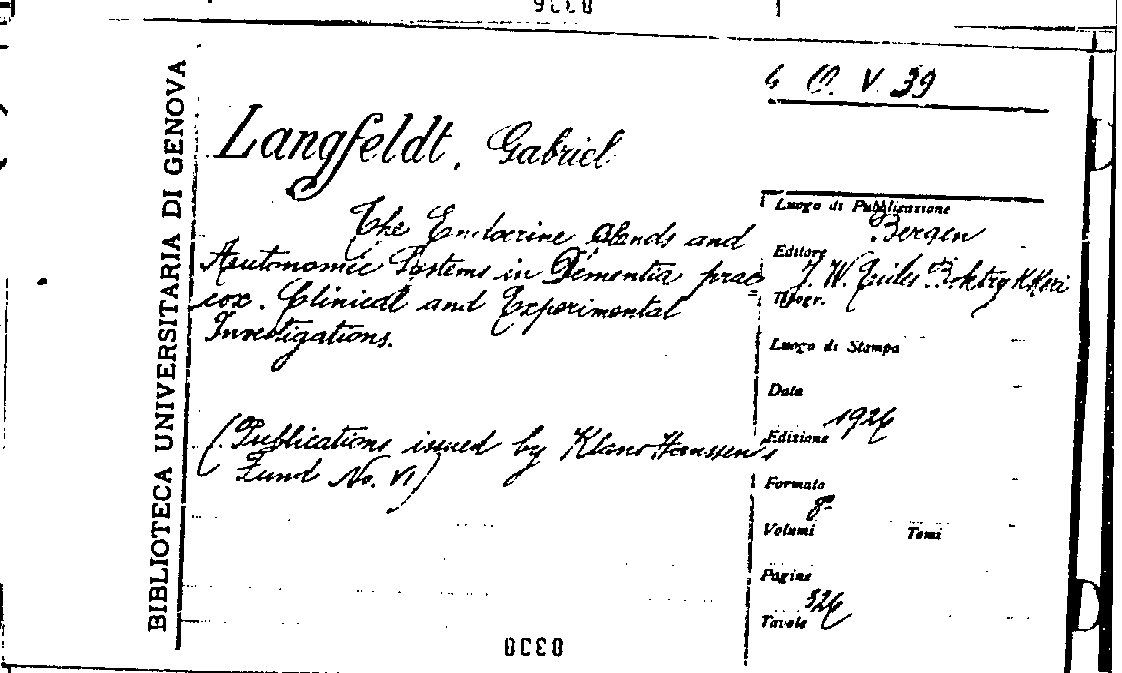 BIBLIOTECA UNIVERSITARIA DI GENOVA
6 O. V. 39
Langfeldt, Gabriel
The Endocrine Glands and
Autonomic Systems in Dementia prae=
cox. Clinical and Experimental
Investigations.
(Publications issued by Klaus Hanssen's
Fund No. VI)
Luogo di Pubblicazione
Bergen
Editore
J. W.
Tipogr.
Luogo di Stampa
Data
1926
Edizione
Formato
8º
Volumi Tomi
Pagine
326
Tavole